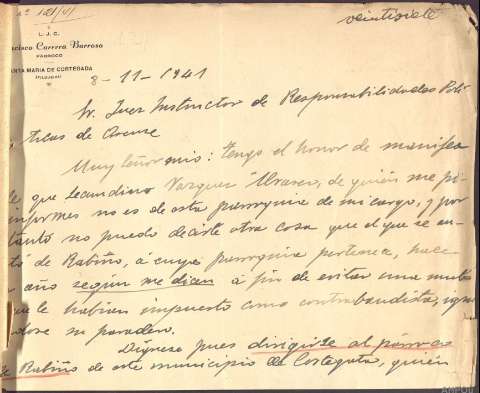 veintisiete
L. J. C.
cisco Correra Barrosa
PARROCO
NTA MARIA DE CORTEGADA
8-11-1941
Sr. Juez Instructor de Responsabilidades Polí-
ticas de Orense
Muy Señor mio: tengo el honor de manifes
que Secundino Vazquez Alvarez, de quién me pi-
informes no es de esta parroquia de mi cargo, y por
tanto no puedo decirle otra cosa que el que se au-
tó de Rabiño, á cuya parroquia pertenece, hace
año según me dicen á fin de evitar una multa
que le habian impuesto como contrabandista, igno
dose su paradero.
Dígnese pues dirigirse al párroco
Rabiño de este municipio de Cortegada, quién